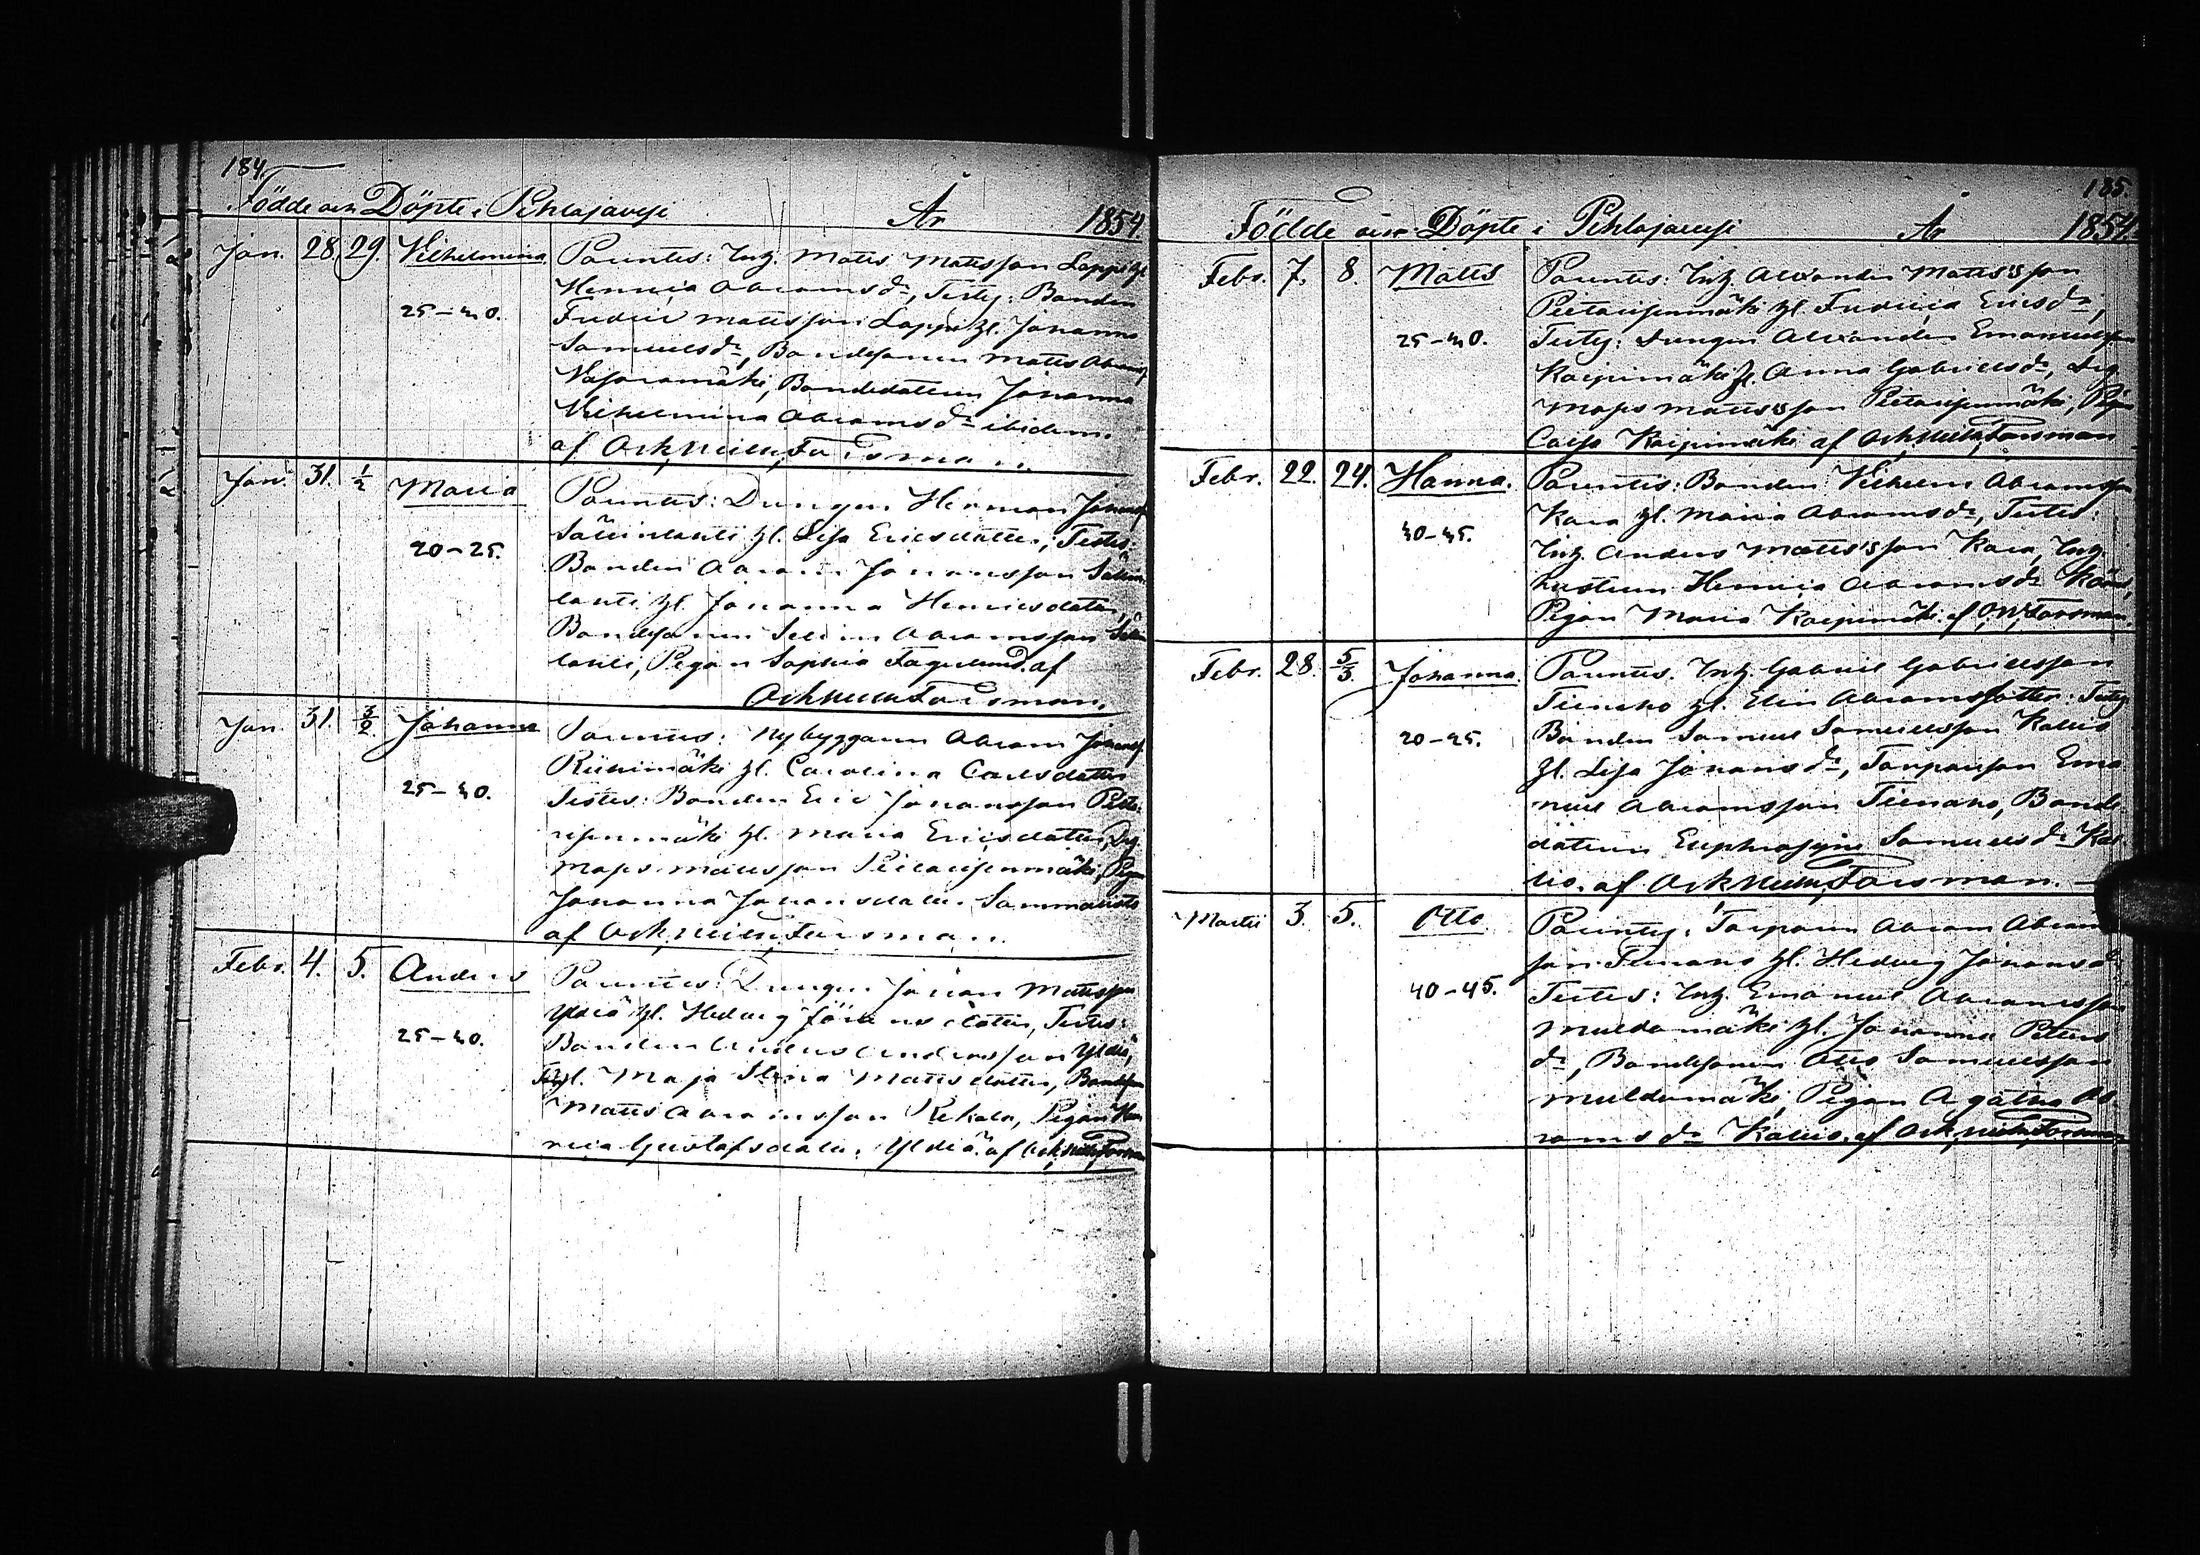 184.
Födde och Döpte i Pihlajavesi År 1854.
Jan. 28. 29. Vilhelmina 25-40.
Parentes: Inh. Matts Mattsson Lappi hl.
Henrica Abramsdr, Testes: Bonden
Fredric Mattsson Lappi hl. Johanna
Samuelsdr, Bondesonen Matts Abramss.
Vasaramäki, Bondedottren Johanna
Vilhelmina Abramsdr ibidem.
af Forsman.
Jan. 31. 1/2 Maria 20-25.
Parentes: Drängen Herman Johanss.
hl. Lisa Ericsdotter, Testes:
Bonden Abram Johansson
hl. Johanna Henricsdotter,
Bondesonen Abramsson
Pigan Sophia Fagerlund. af
Forsman.
Jan. 31. 3/2. Johanna 25-40.
Parentes: Nybyggaren Abram Johanss.
Riihimäki hl. Carolina Carlsdotter
Testes: Bonden Eric Johansson Pieta-
risenmäki hl. Maria Ericsdotter, Drg.
Maps Mattsson Pietarisenmäki, Pigan
Johanna Johansdotter
af Forsman.
Febr. 4. 5. Anders 25-40.
Parentes: Drängen Johan Mattsson
Yldiä hl. Hedvig Johansdotter, Testes:
Bonden Anders Andersson Yldiä,
hl. Maja Stina Mattsdotter, Bondeson
Matts Abramsson Pigan Hen-
rica Gustafsdotter Yldiä. af Forsman
185.
Födde och Döpte i Pihlajavesi År 1854.
Febr. 7. 8. Matts 25-40.
Parentes: Inh. Alexander Mattsson
Pietarisenmäki hl. Fredrica Ericsdr,
Testes: Drängen Alexander Emanuelsson
Kaipimäki hl. Anna Gabrielsdr, Drg.
Maps Mattsson Pietarisenmäki, Pigan
Caisa Kaipimäki af Forsman
Febr. 22. 24. Hanna. 40-45.
Parentes: Bonden Vilhelm Abramsson
Kara hl. Maria Abramsdr, Testes:
Inh. Anders Mattsson Kara, Inh.
hustrun Henrica Abramsdr
Pigan Maria Kaipimäki. af Forsman.
Febr. 28. 5/3. Johanna. 20-25.
Parentes. Inh. Gabriel Gabrielsson
Tienaho hl. Elin Abramsdotter: Testes
Bonden Samuel Samuelsson Kallio
hl. Lisa Johansdr, Torparson Ema-
nuel Abramsson Tienaho, Bonde
dottren Euphrosyne Samuelsdr Kal-
lio. af Forsman.
Martii 3. 5. Otto 40-45.
Parentes: Torparen Abram Abrams-
son Tienaho hl. Hedvig Johansdr
Testes: Inh. Emanuel Abramsson
Muldamäki hl. Johanna Peters
dr, Bondesonen Otto Samuelsson
Muldamäki, Pigan Agatha Ab-
ramsdr Kallio. af Forsman